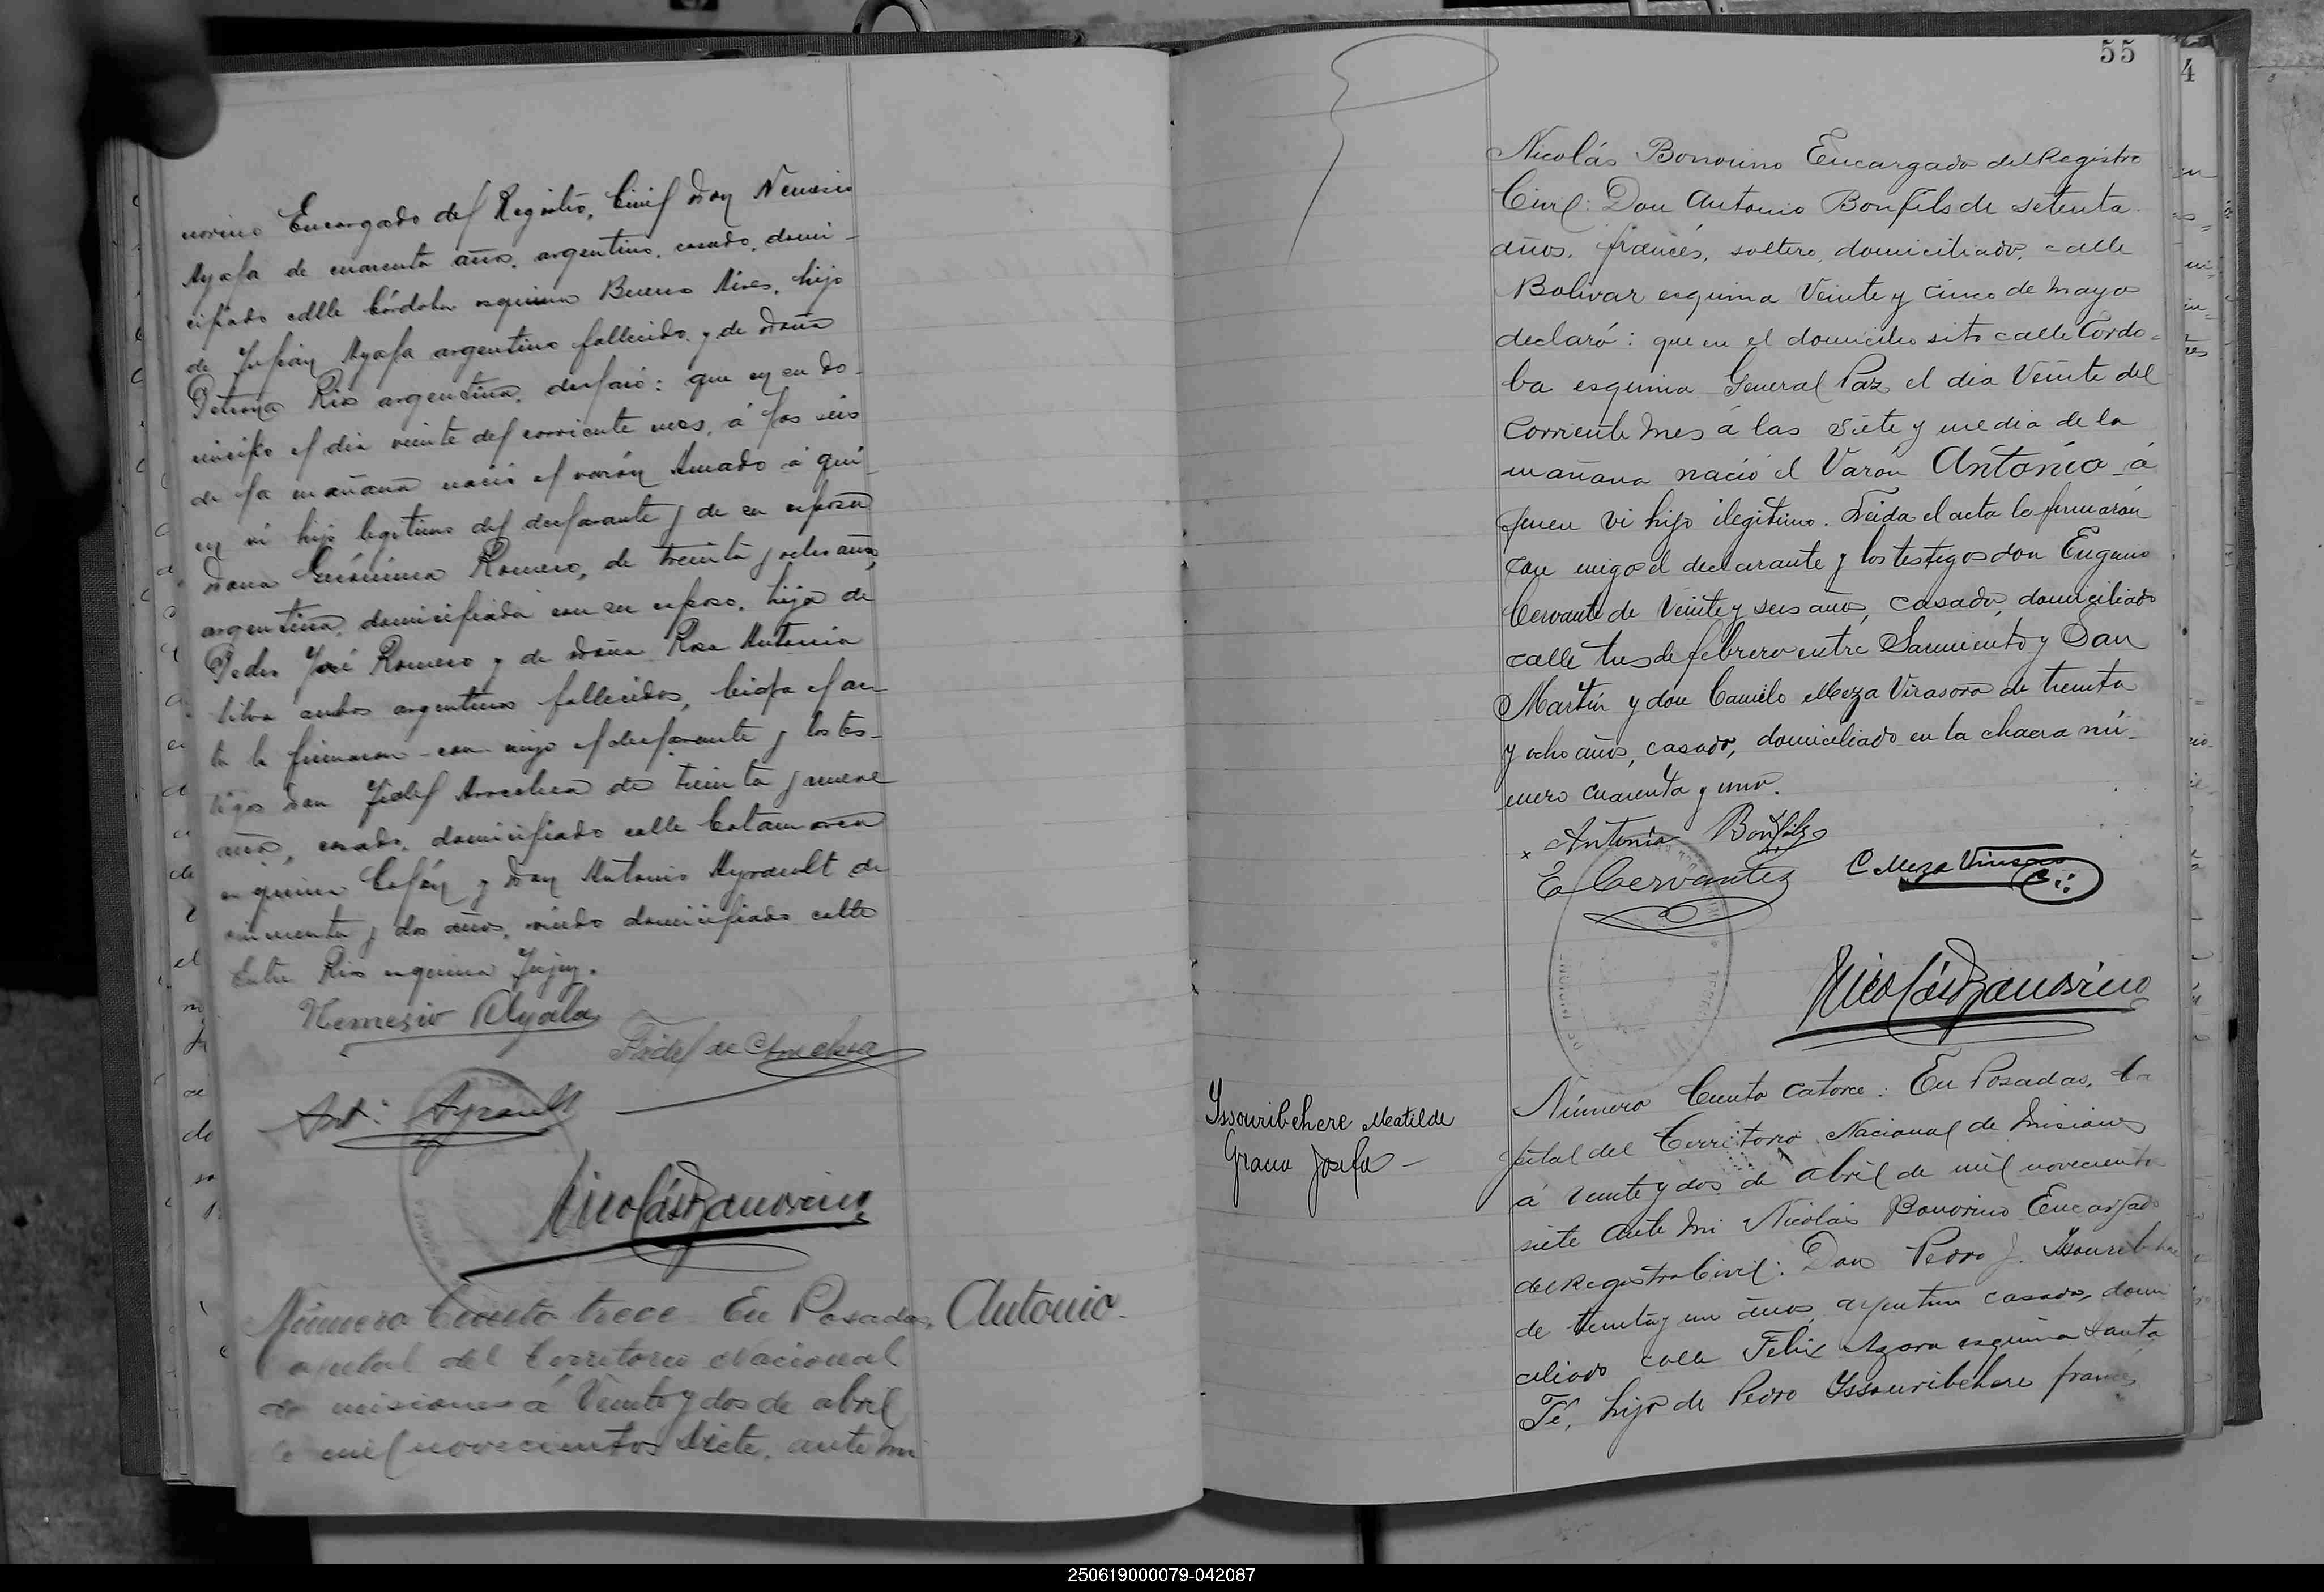 norino Encargado del Registro Civil Don Nemesio
Ayala de cuarenta años, argentino, casado, domi-
ciliado calle Córdoba esquina Buenos Aires, hijo
de Julián Ayala argentino fallecido y de Doña
Petrona Rios argentina, declaró: que en su do-
micilio el dia veinte del corriente mes, á las seis
de la mañana nació el varón Amado á qui-
en ví hijo legitimo del declarante y de su esposa
Doña Gerónima Romero, de treinta y ocho años,
argentina, domiciliada con su esposo, hija de
Pedro José Romero y de Doña Rosa Antonia
Silva ambos argentinos fallecidos, leida el ac-
ta la firmaron con migo el declarante y los tes-
tigos Don Fidel Arrechea de treinta y nueve
años, casado, domiciliado calle Catamarca
esquina Colón y Don Antonio Ayrault de
cincuenta y dos años, viudo domiciliado calle
Entre Rios esquina Jujuy.
Nemesio Ayala
Fidel de Arrechea
Ant. Ayrault
Nicolás Bonorino
Número Ciento trece. En Posadas, Antonio.
Capital del Territorio Nacional
de misiones á Veinte y dos de abril
de mil novecientos Siete, ante mi
55
4
Nicolás Bonorino Encargado del Registro
Civil: Don Antonio Bonfils de setenta
años, francés, soltero, domiciliado, calle
Bolivar esquina Veinte y cinco de Mayo
declaró: que en el domicilio sito calle Cordo-
ba esquina General Paz el dia Veinte del
Corriente Mes á las Siete y media de la
mañana nació el Varon Antonio á
quien vi hijo ilegitimo. Leida el acta la firmarón
con migo el declarante y los testigos don Eugenio
Cervante de Veinte y seis años, casado, domiciliado
calle tres de febrero entre Sarmiento y San
Martín y don Camilo Meza Virasoro de treinta
y ocho años, casado, domiciliado en la chacra nú-
mero cuarenta y uno.
x Antonio Bonfils
E Cervantes C Meza Virasoro
Nicolás Bonorino
Yssouribehere Matilde
Gracia Josefa
Número Ciento catorce: En Posadas, Ca
pital del Territorio Nacional de Misiones
á veinte y dos de Abril de mil novecientos
siete Ante Mi Nicolás Bonorino Encargado
del Registro Civil: Don Pedro J. Yssouribehere
de treinta y un años, argentino casado, domi
ciliado calle Felix Azara esquina Santa
Fé, hijo de Pedro Yssouribehere francés,
250619000079-042087